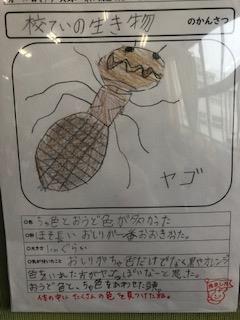 校ていの生き物 のかんさつ
ヤゴ
ちゃ色とおうど色が多かった
ほそ長い おしりが一番おおきかった。
1cmぐらい
おしりがちゃ色だけでなく黒やオレンジ
色をいれた方がヤゴっぽいなーと思った。
おうど色と、ちゃ色をあわせた頭
体の中に たくさんの 色を見つけたね。